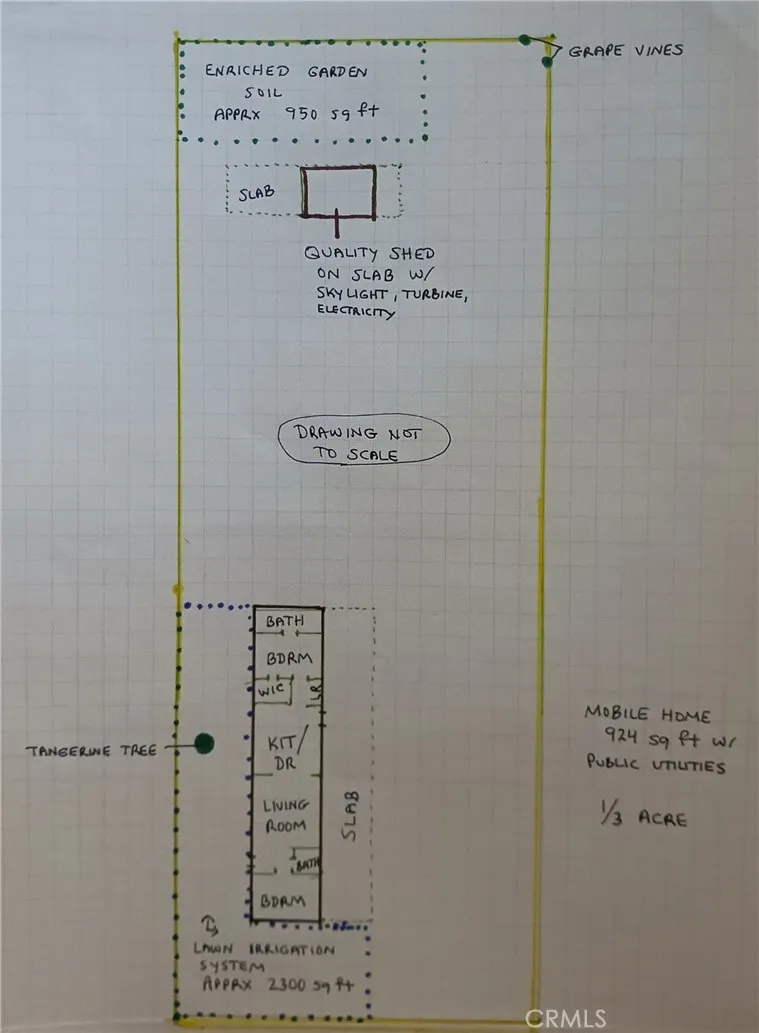 GRAPE VINES
ENRICHED GARDEN
SOIL
APPRX 950 sq ft
SLAB
QUALITY SHED
ON SLAB W/
SKYLIGHT, TURBINE,
ELECTRICITY
DRAWING NOT
TO SCALE
BATH
BDRM
WIC
LR
KIT/
DR
TANGERINE TREE
MOBILE HOME
924 sq ft w/
PUBLIC UTILITIES
1/3 ACRE
LIVING
ROOM
SLAB
BATH
BDRM
LAWN IRRIGATION
SYSTEM
APPRX 2300 sq ft
CRMLS